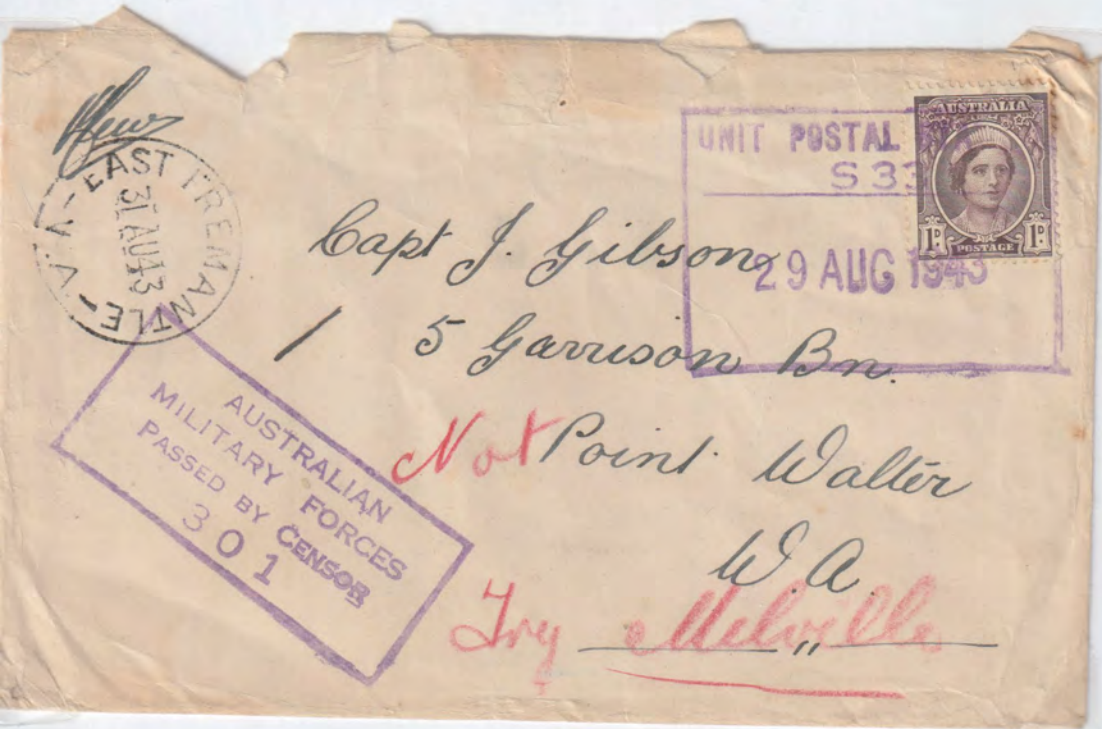 EAST FREMANTLE - W.A -
31 AU 43
UNIT POSTAL
S 33
29 AUG 1943
AUSTRALIA
1D. 1D.
POSTAGE
Capt J. Gibson
1 5 Garrison Bn.
Not Point Walter
W A.
Try Melville
AUSTRALIAN
MILITARY FORCES
PASSED BY CENSOR
301